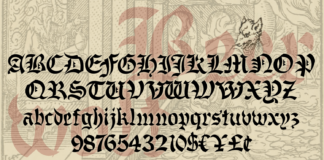 ABCDEFGHIJKLMNOP
QRSTUVWXYZ
abcdefghijklmnopqrstuvwxyz
9876543210$€¥£¢